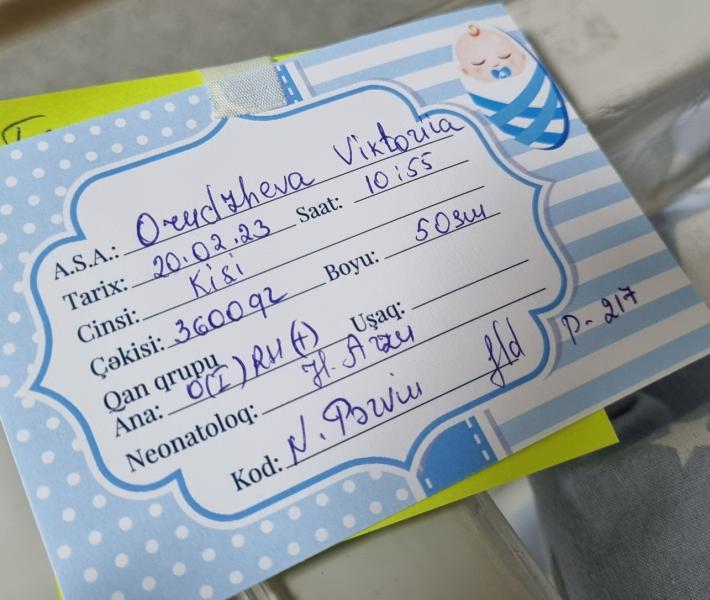 A.S.A.: Orudzheva Viktoriia
Tarix: 20.02.23 Saat: 10:55
Cinsi: Kisi
Çəkisi: 3600qr Boyu: 50sm
Qan qrupu
Ana: 0(I) RH(+) Uşaq:
Neonatoloq: H. Arzu
Kod: N. Pərvin
P-217